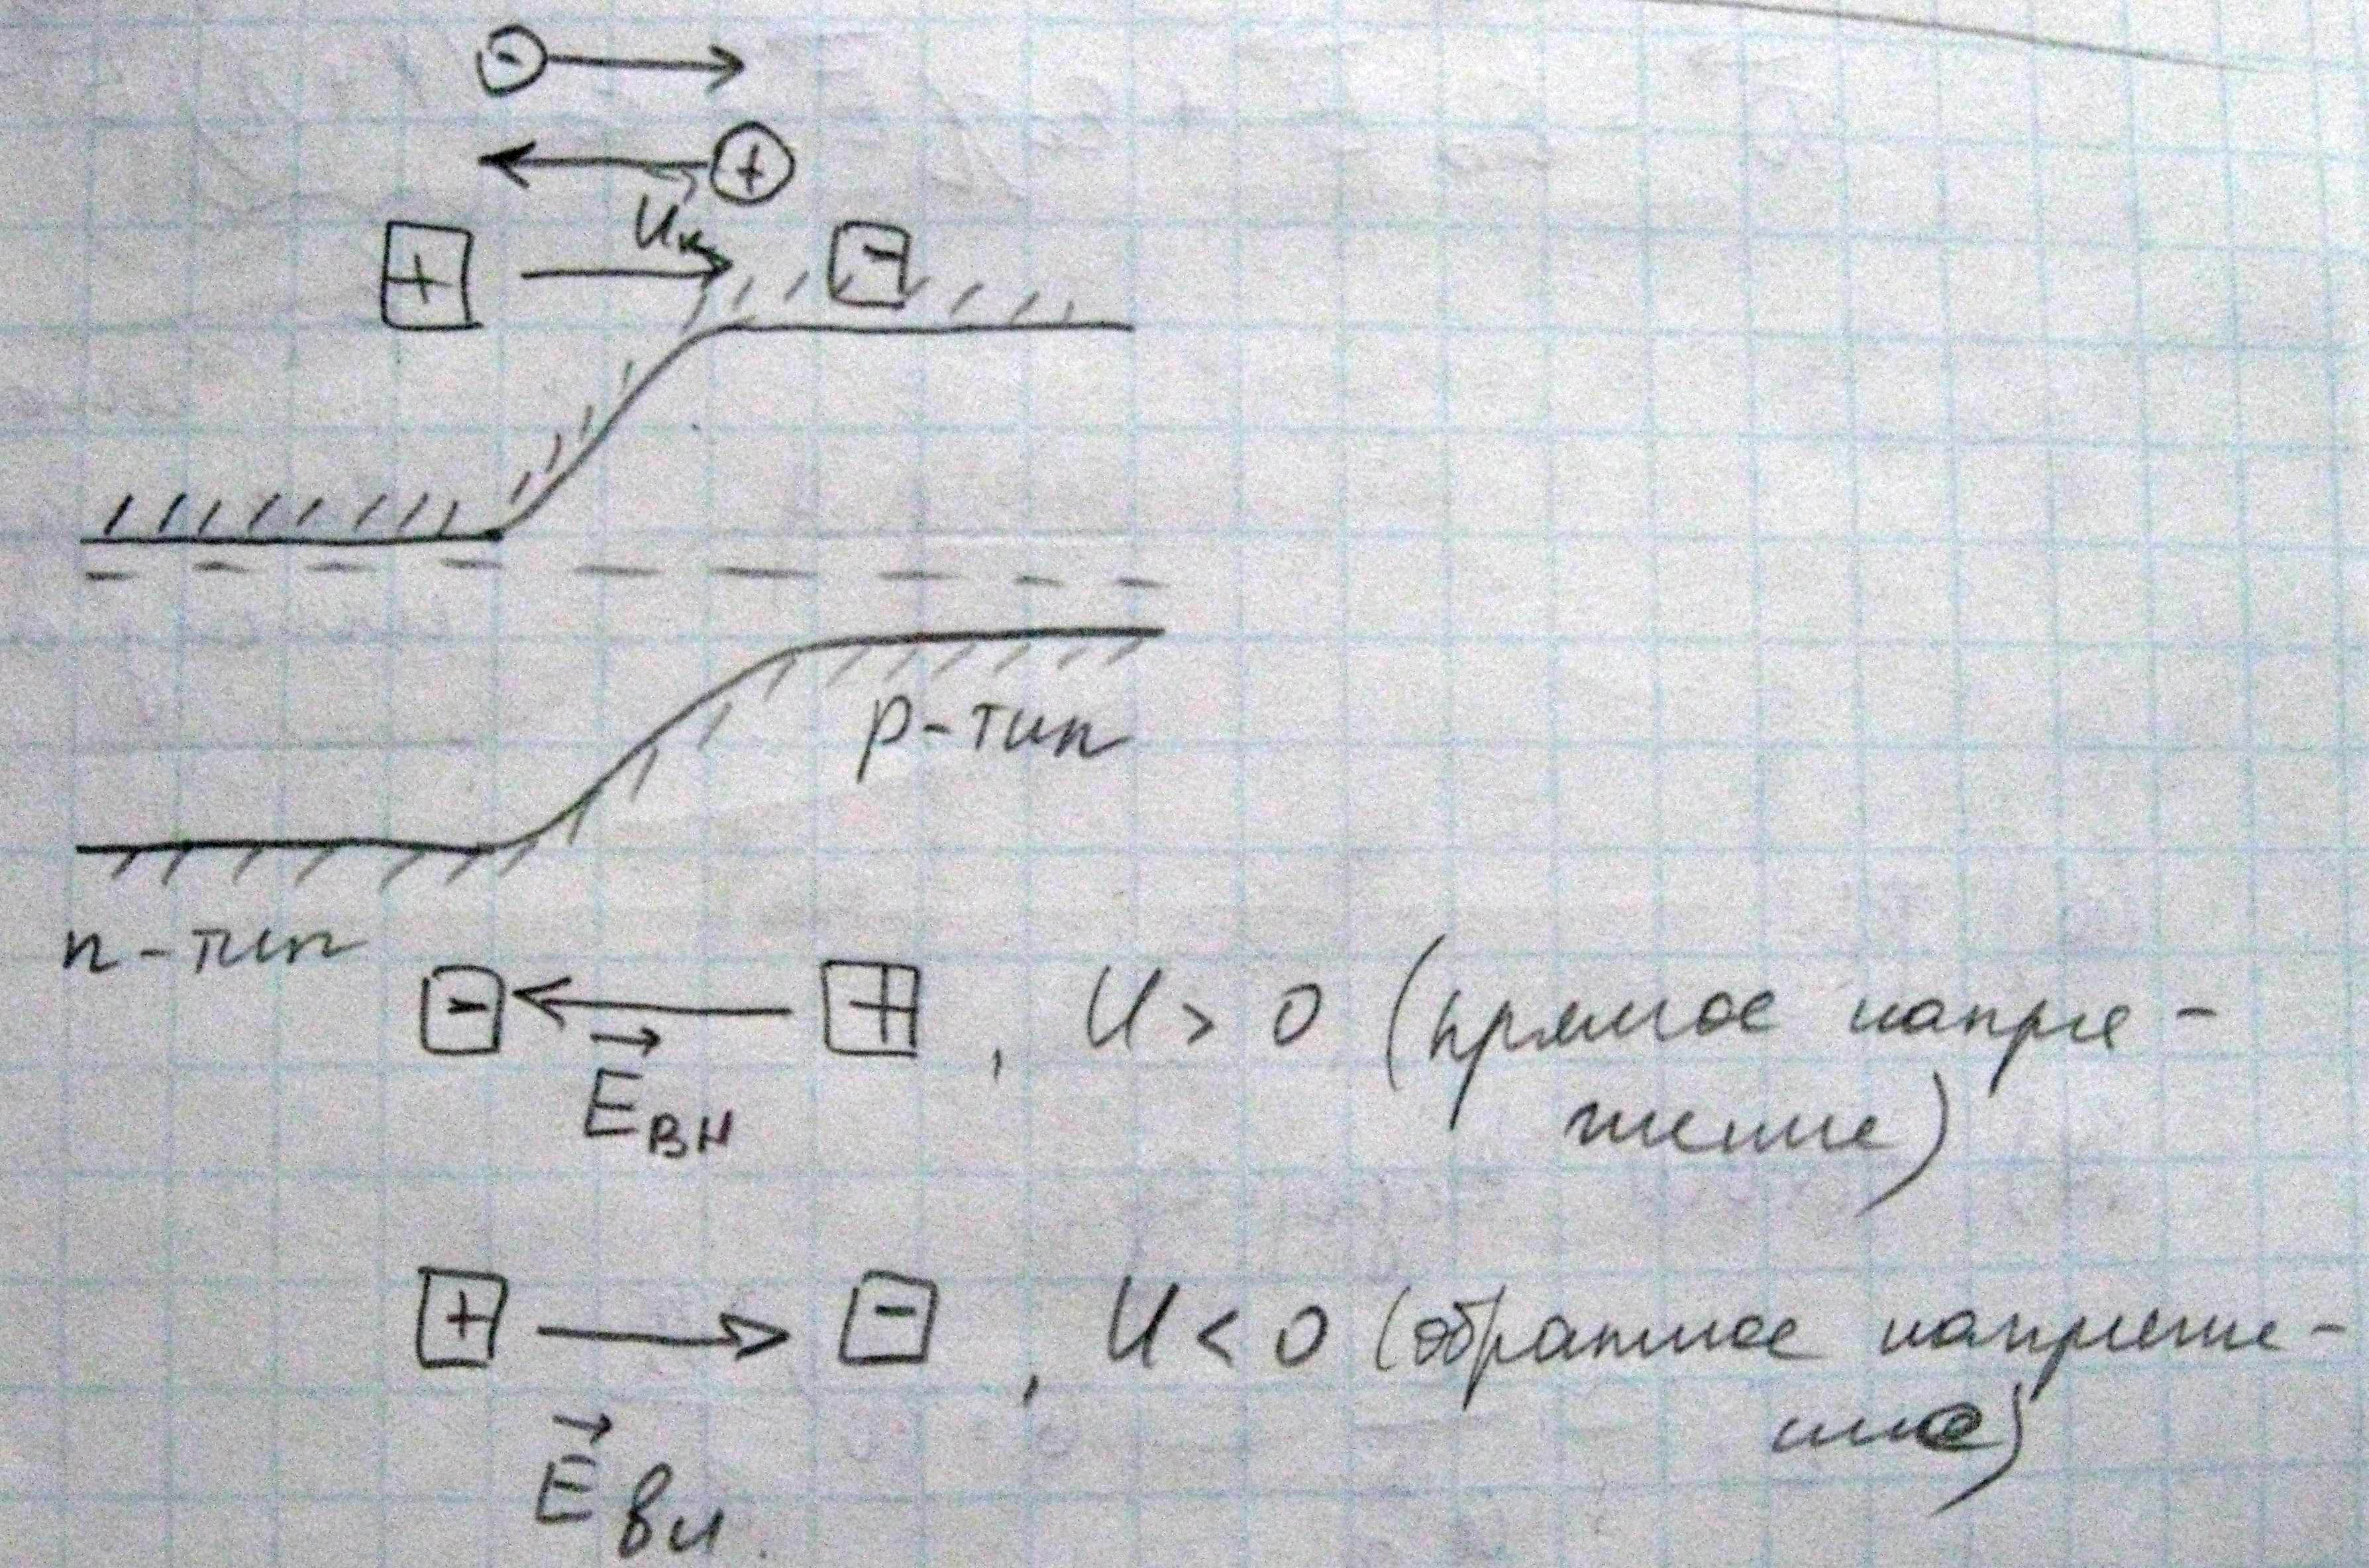 -
+
Uк
+ -
p-тип
n-тип
- +, U > 0 (прямое напря-
Eвн
жение)
+ -, U < 0 (обратное напряже-
ние)
Eвн.